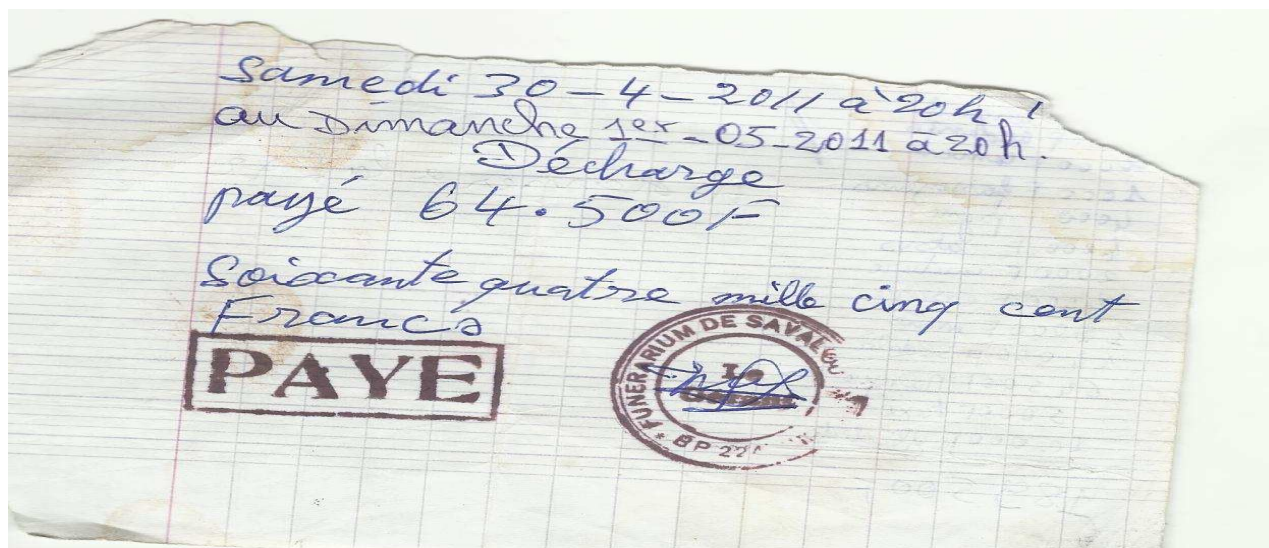 Samedi 30-4-2011 à 20h !
au Dimanche 1er-05-2011 à 20h.
Décharge
payé 64.500F
Soixante quatre mille cinq cent
Francs
PAYE
FUNERARIUM DE SAVALOU
Le
BP 22